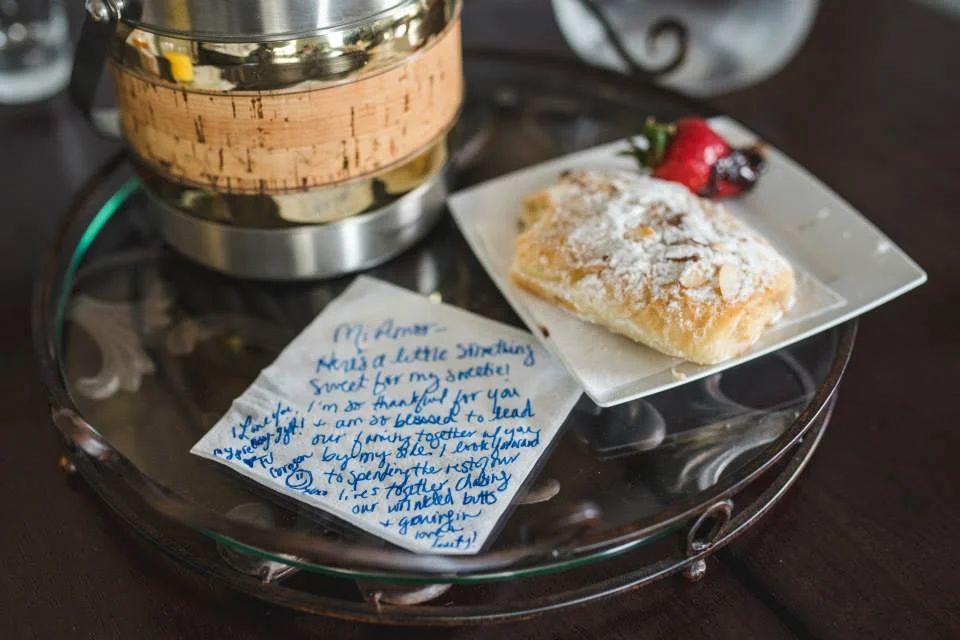 Mi Amor-
Here's a little something
sweet for my sweetie!
I'm so thankful for you
+ am so blessed to lead
our family together w/ you
by my side. I look forward
to spending the rest of our
lives together chasing
our wrinkled butts
+ growing in
love +
I Love you
my precious gift!
♥ Tu
Corazon
xoxo